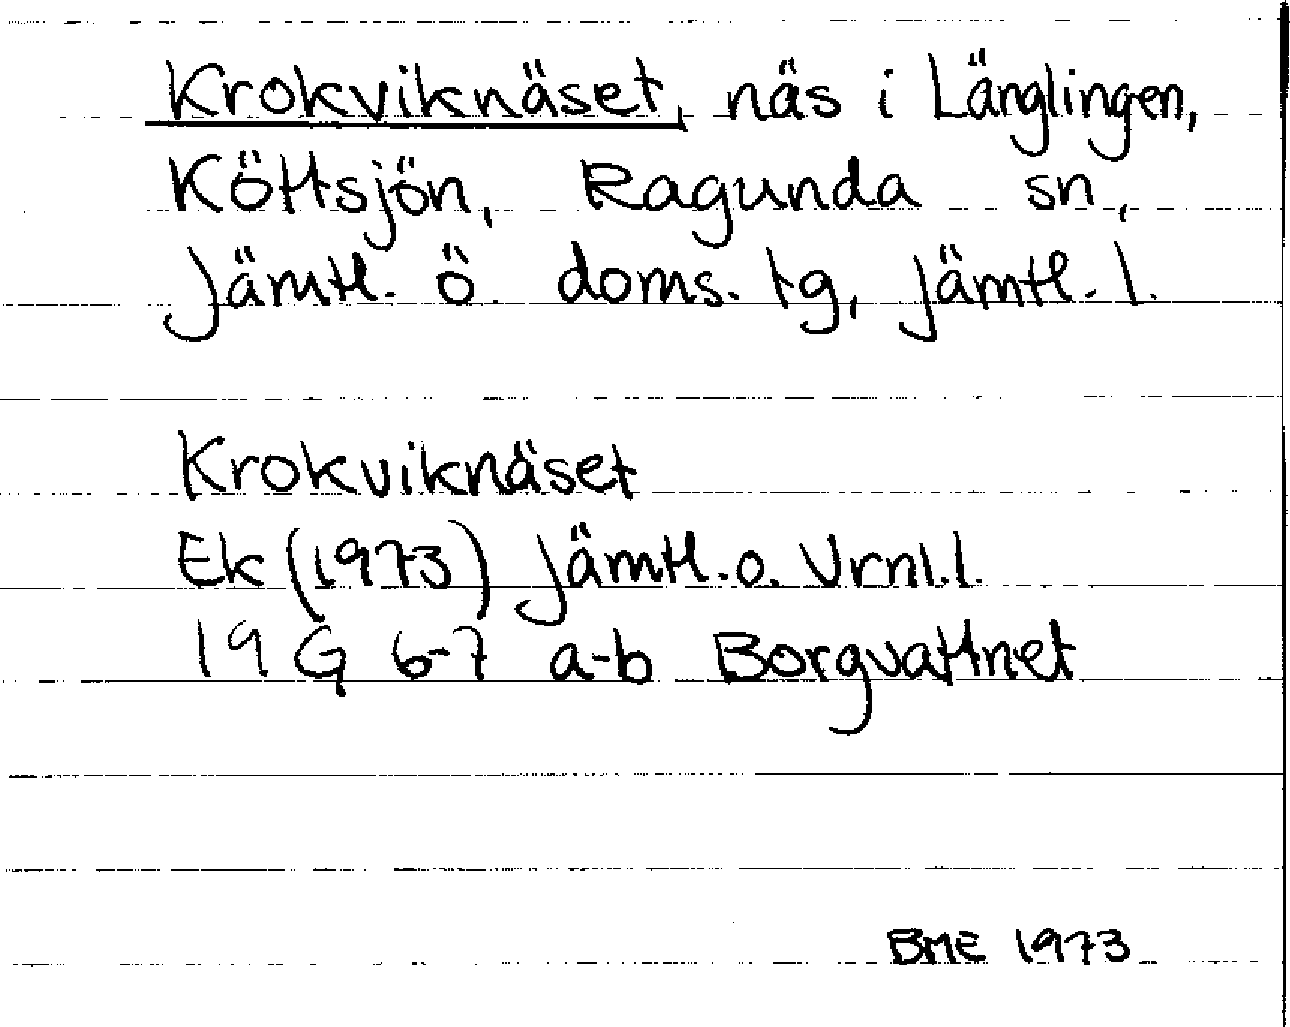 Krokviknäset, näs i Länglingen,
Köttsjön, Ragunda sn,
Jämtl. ö. doms. tg, Jämtl. l.
Krokviknäset
Ek (1973) Jämtl. o. Vrnl. l.
19 G 6-7 a-b Borgvattnet
BME 1973